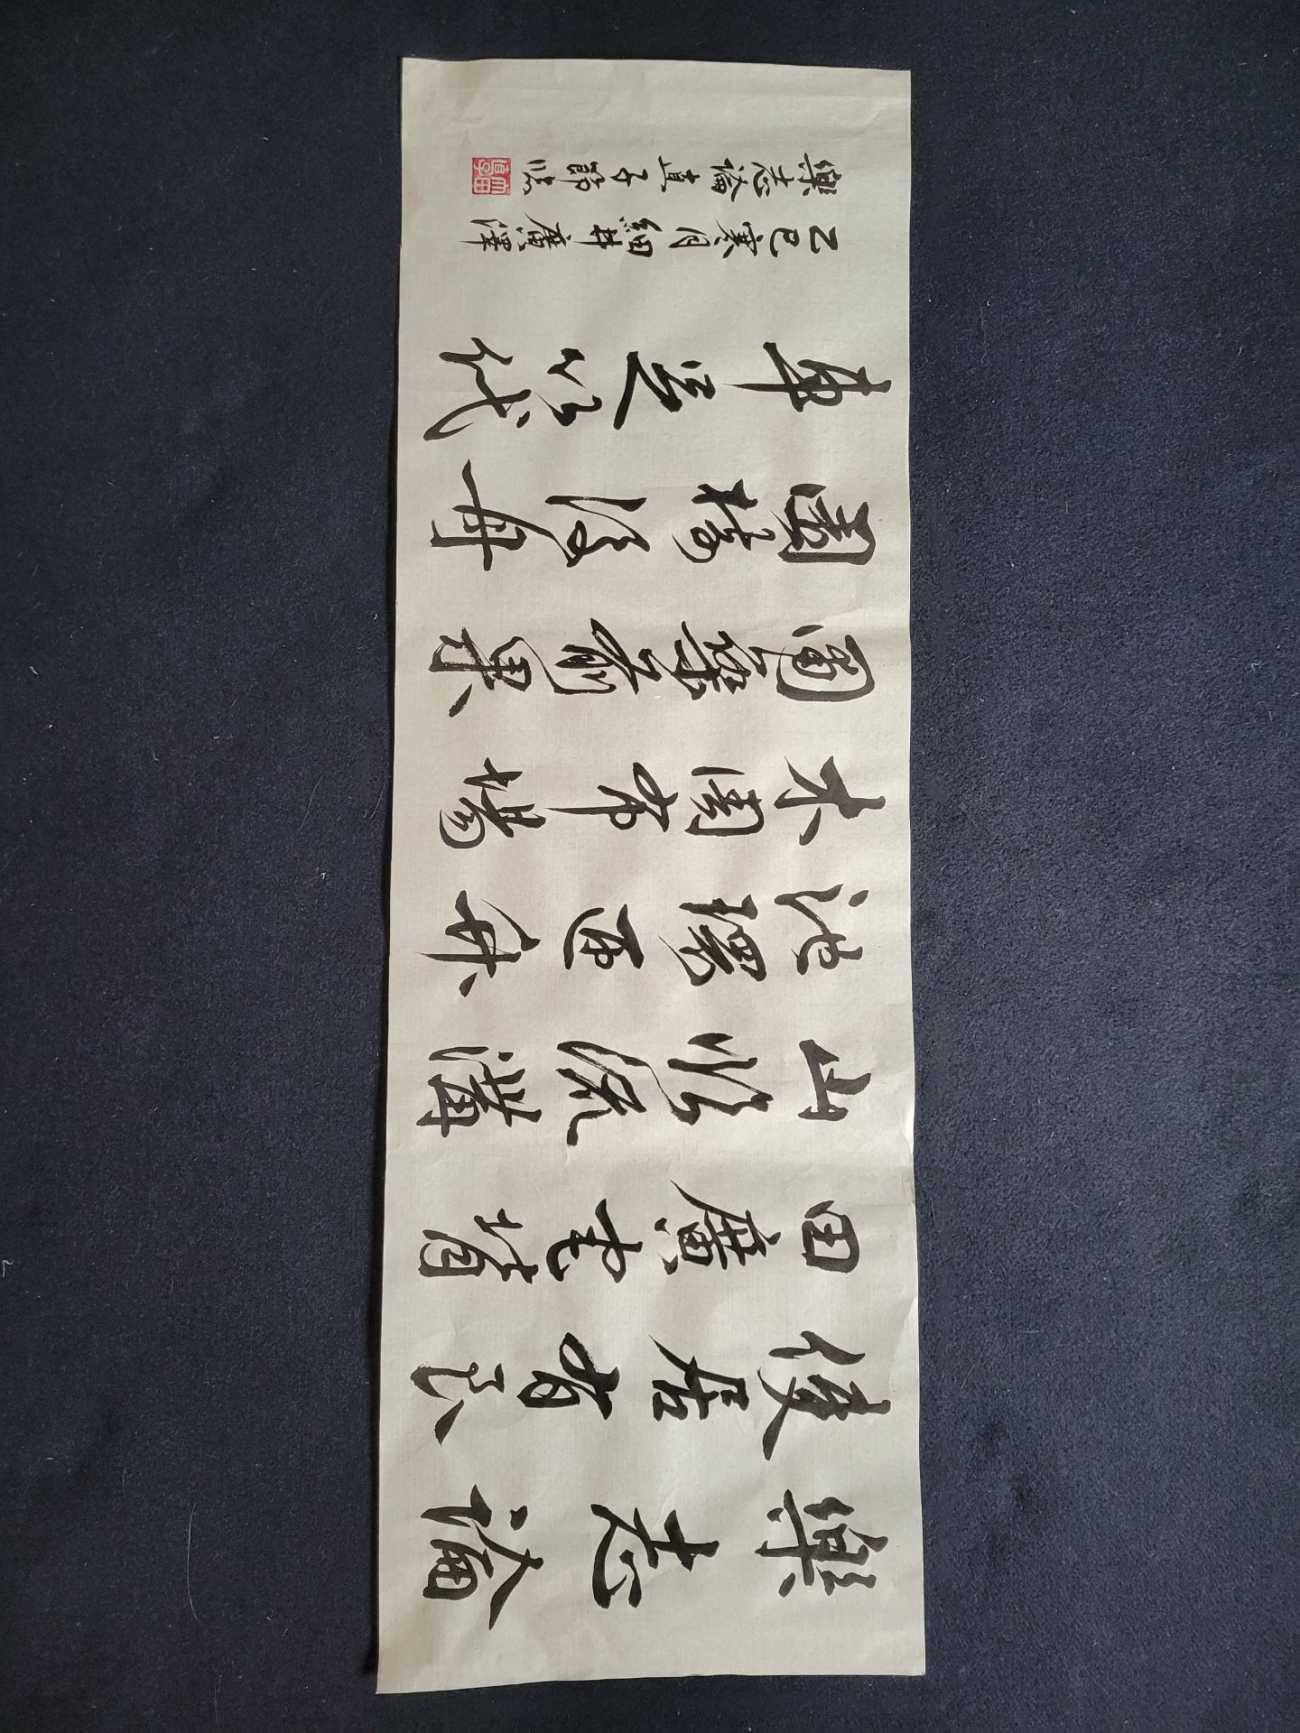 樂志論
使居有良
田廣宅背
山臨流溝
池環匝竹
木周布場
圃築前果
園樹後舟
車足以代
乙巳寒月細井廣澤
樂志論直子節臨